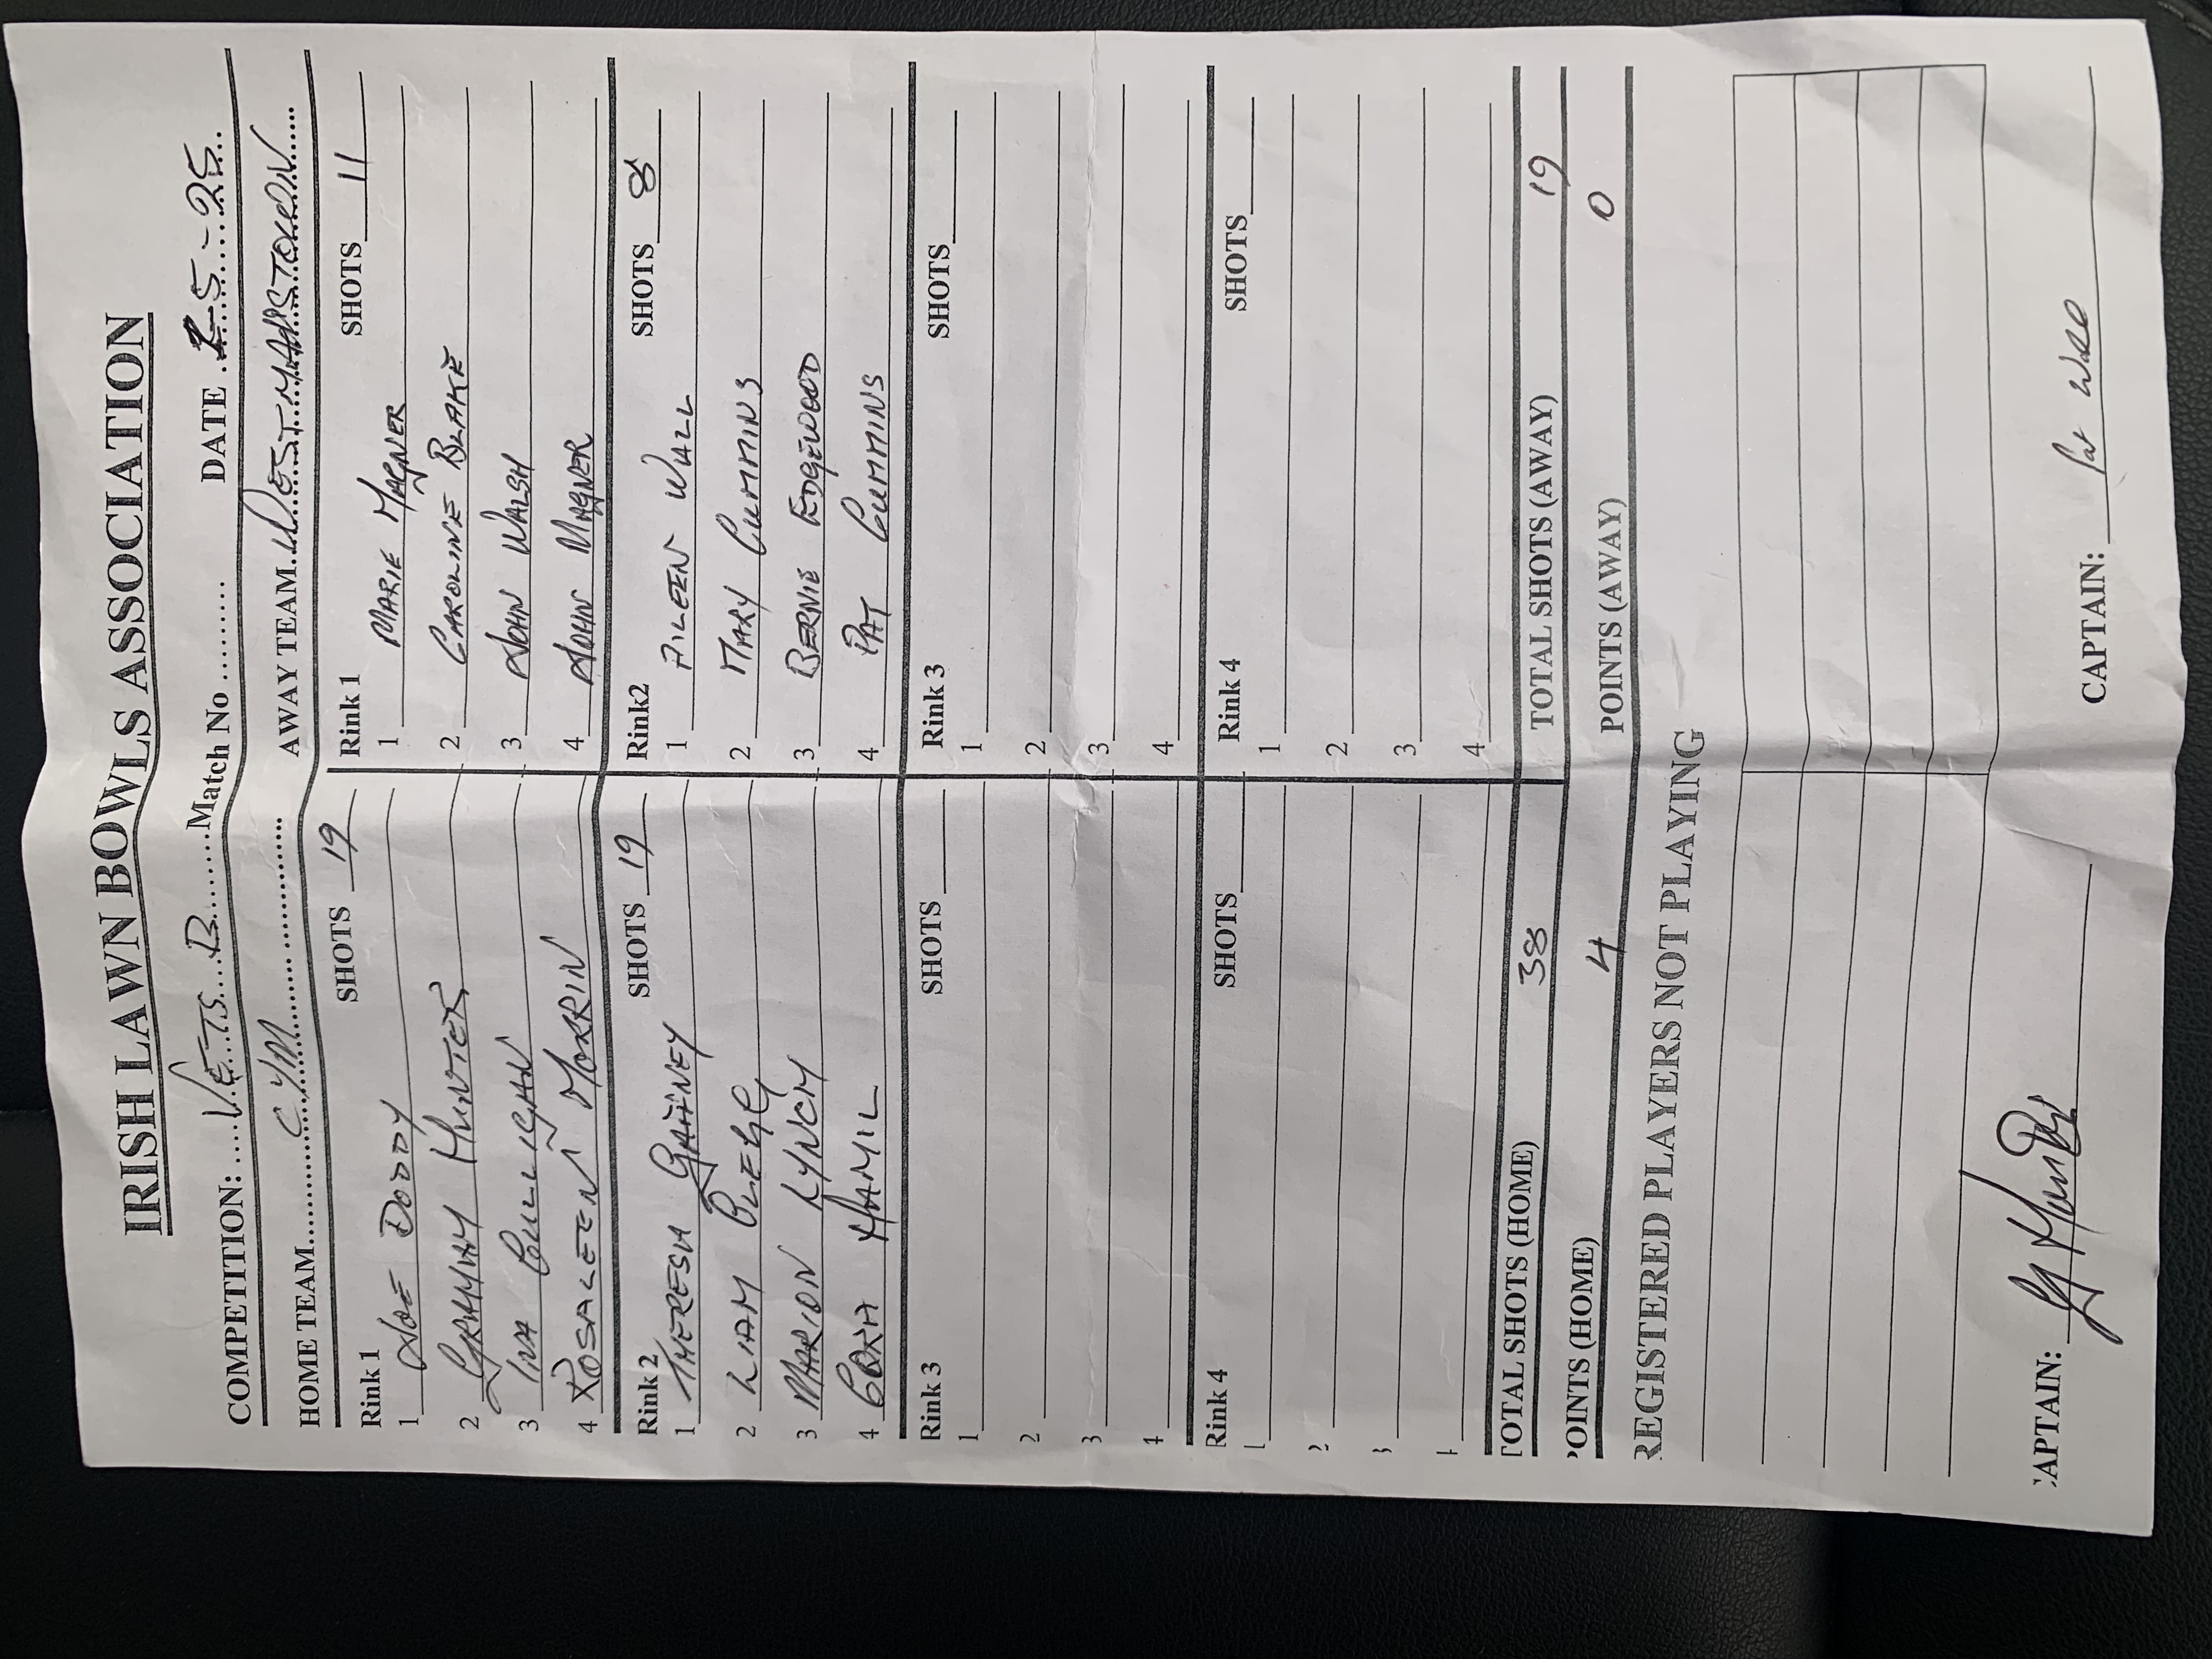 IRISH LAWN BOWLS ASSOCIATION
COMPETITION: .....VETS..B........Match No .......... DATE ....-5-25..
HOME TEAM............CYM............ AWAY TEAM..WESTMANSTOWN......
Rink 1 SHOTS 19
1 JOE DODDY
2 GRAHAM HUNTER
3 INA CULLIGAN
4 ROSALEEN MORRIN
Rink 1 SHOTS 11
1 MARIE MAGNER
2 CAROLINE BLAKE
3 JOHN WALSH
4 JOHN MAGNER
Rink 2 SHOTS 19
1 THERESA GAFFNEY
2 LIAM
3 MARION LYNCH
4 CORA HAMIL
Rink2 SHOTS 8
1 AILEEN WALL
2 MARY CUMMINS
3 BERNIE EDGEWOOD
4 PAT CUMMINS
Rink 3 SHOTS
1
2
3
4
Rink 3 SHOTS
1
2
3
4
Rink 4 SHOTS
1
2
3
4
Rink 4 SHOTS
1
2
3
4
TOTAL SHOTS (HOME) 38 TOTAL SHOTS (AWAY) 19
POINTS (HOME) 4 POINTS (AWAY) 0
REGISTERED PLAYERS NOT PLAYING
CAPTAIN: CAPTAIN: